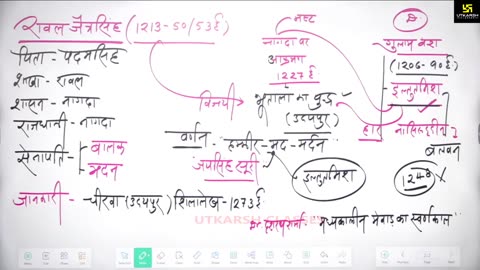 रावल जैत्रसिंह (1213-50/53ई)
पिता - पदमसिंह
शाखा - रावल
शासन - नागदा
राजधानी - नागदा
सेनापति - बालक
मदन
जानकारी - चीरवा (उदयपुर) शिलालेख - 1273ई
नष्ट
नागदा पर
1227ई
विजयी
भूताला का युद्ध
(उदयपुर)
वर्णन - हम्मीर-मद-मर्दन
जयसिंह सूरी
इल्तुतमिश
गुलाम वंश
(1206-90ई)
इल्तुतमिश
हार
बलबन
1248
मध्यकालीन मेवाड़ का स्वर्णकाल
UTKARSH CLASSES
UTKARSH